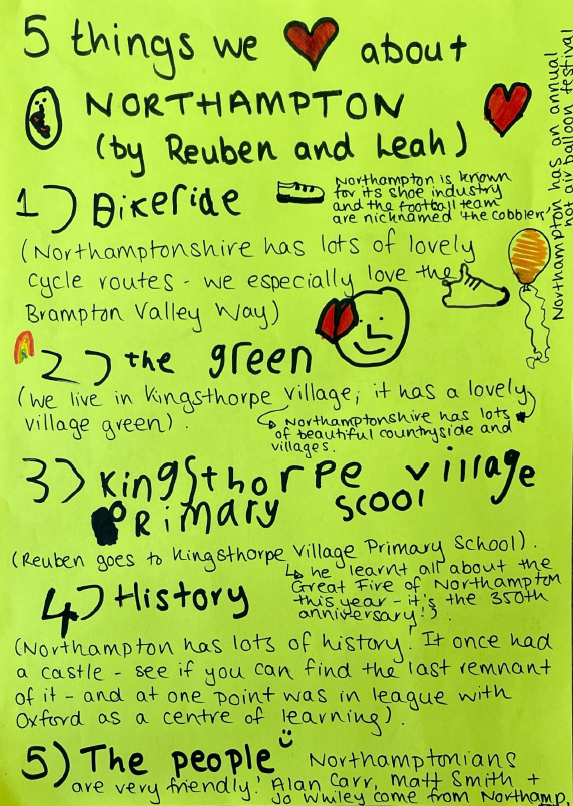 5 things we about
NORTHAMPTON
(by Reuben and Leah)
1) Bikeride
Northampton is known
for its shoe industry
and the football team
are nicknamed 'the cobblers'
Northampton has an annual
hot air balloon festival
(Northamptonshire has lots of lovely
cycle routes - we especially love the
Brampton Valley Way)
2) the green
(we live in Kingsthorpe village; it has a lovely
village green).
Northamptonshire has lots
of beautiful countryside and
villages.
3) Kingsthorpe village
PRimary scool
(Reuben goes to Kingsthorpe Village Primary School).
he learnt all about the
Great Fire of Northampton
this year - it's the 350th
anniversary!).
4) History
(Northampton has lots of history! It once had
a castle - see if you can find the last remnant
of it - and at one point was in league with
Oxford as a centre of learning).
5) The people
Northamptonians
are very friendly! Alan Carr, Matt Smith +
Jo Whiley come from Northamp